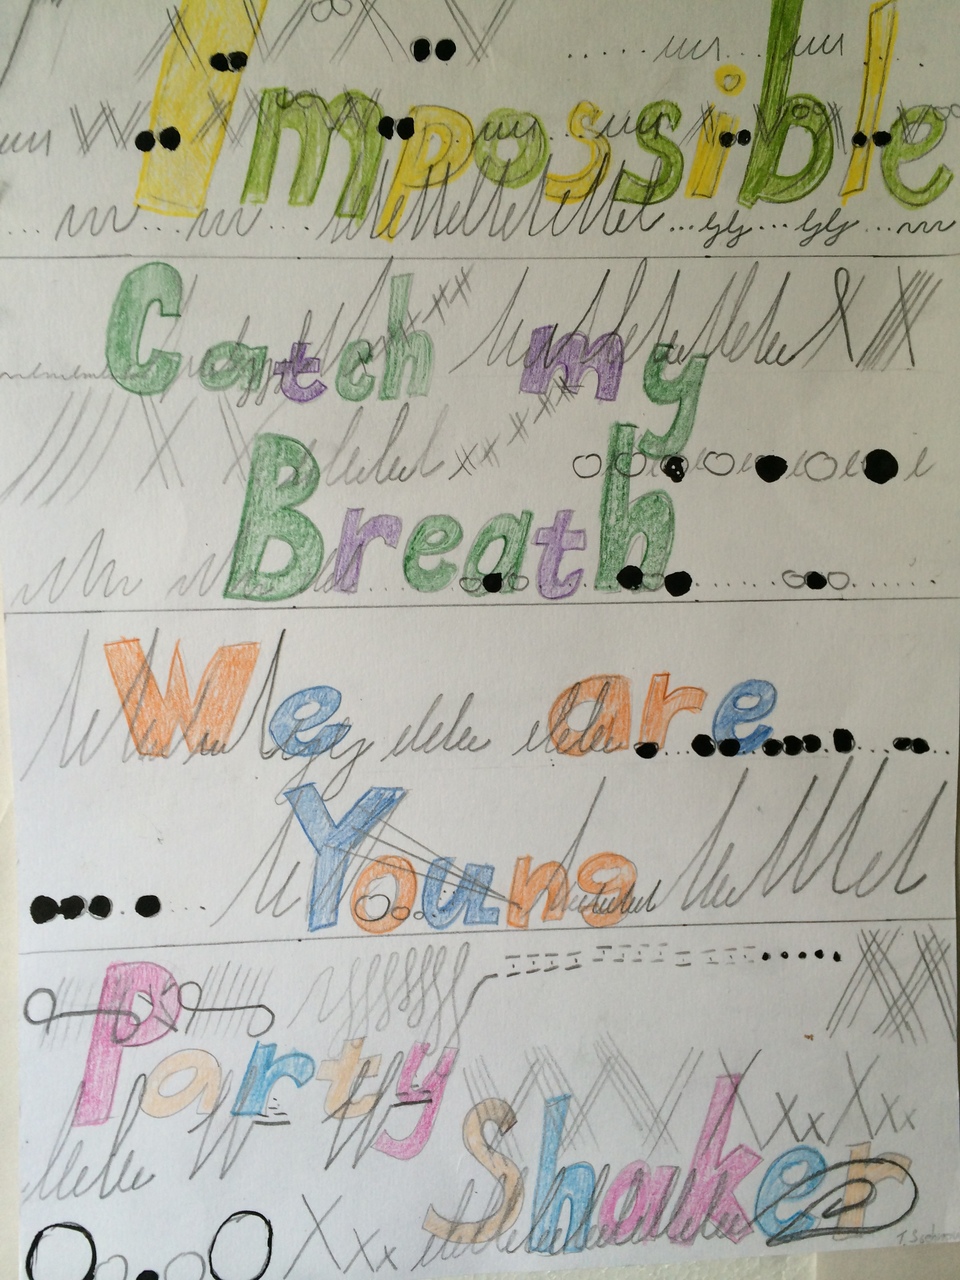 Impossible
Catch my
Breath
We are
Young
Party
Shaker